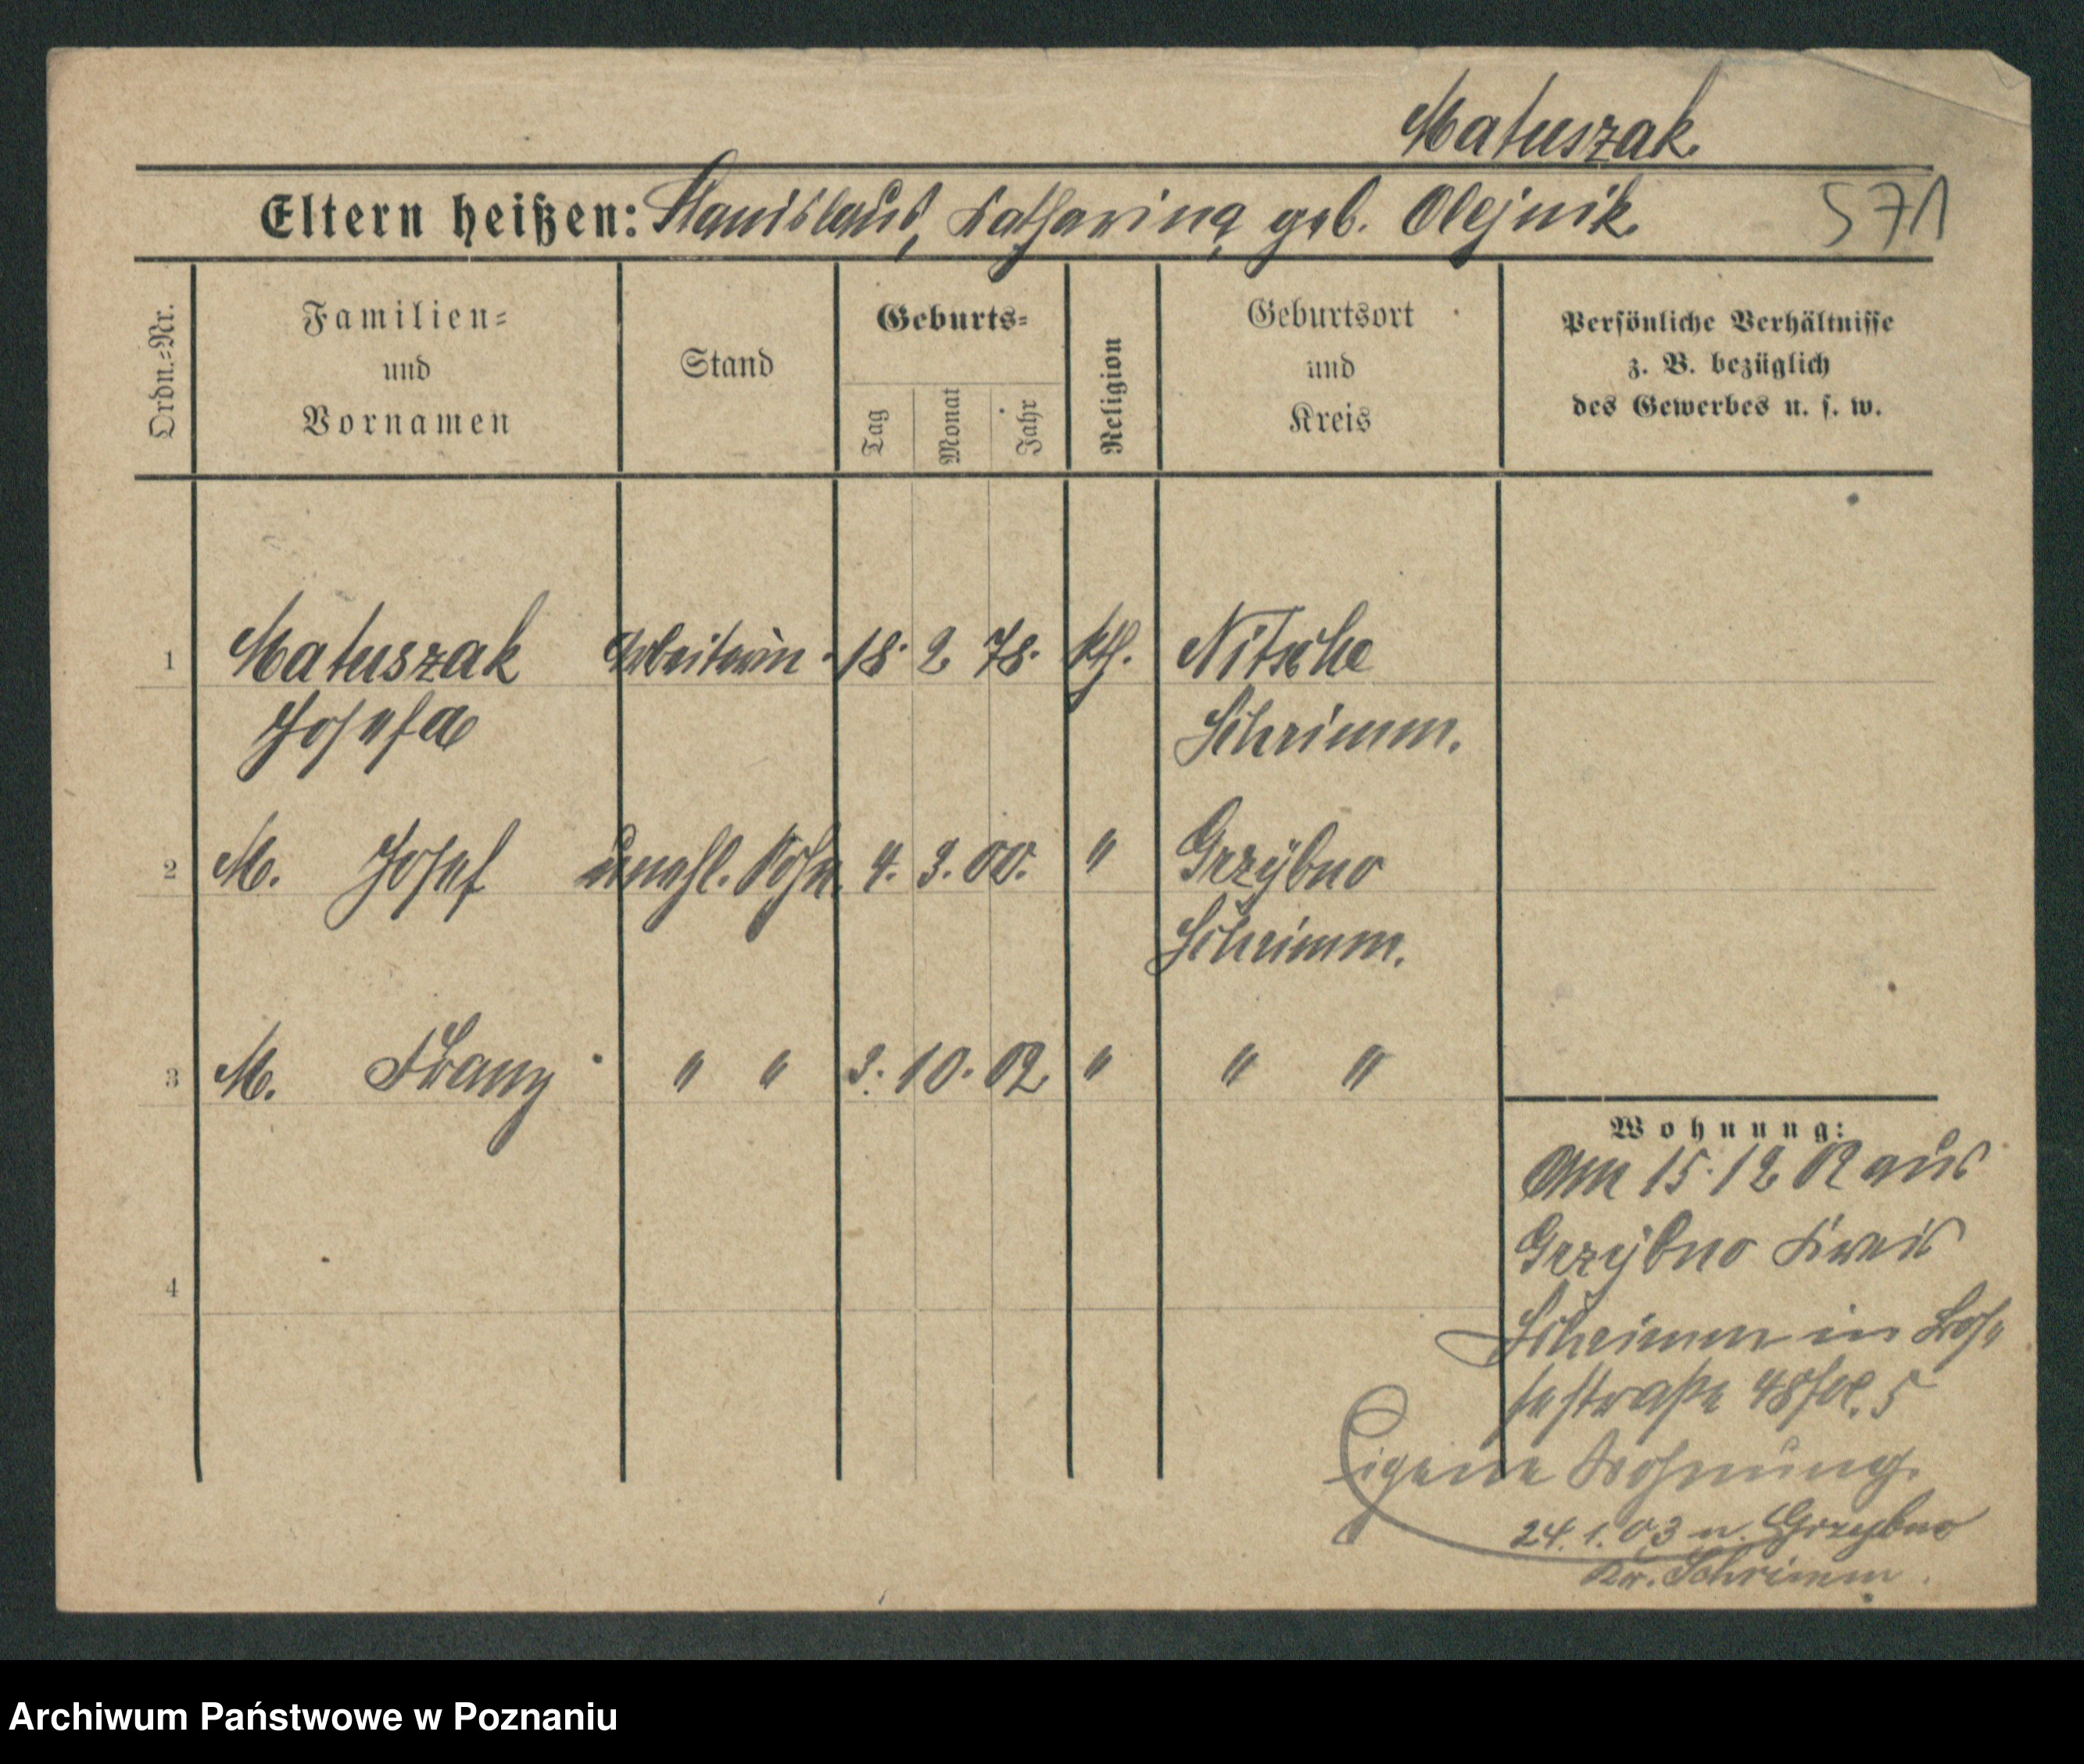 Matuszak.
Eltern heißen: Stanislaus, Katharina geb. Olejnik. 571
Ordn.-Nr.
Familien-
und
Vornamen
Stand
Geburts-
Tag
Monat
Jahr
Religion
Geburtsort
und
Kreis
Persönliche Verhältnisse
z. B. bezüglich
des Gewerbes u. s. w.
1 Matuszak Arbeiterin 18. 2 78. kth. Nitsche
Josefa Schrimm.
2 M. Josef unehl. Sohn. 4. 3. 00. " Grzybno
Schrimm.
3 M. Franz " " 3. 10. 02. " " "
4
Wohnung:
Am 15.12 02 aus
Grzybno Kreis
Schrimm in
48
Eigene Wohnung.
24.1.03 n. Grzybno
Kr. Schrimm.
Archiwum Państwowe w Poznaniu